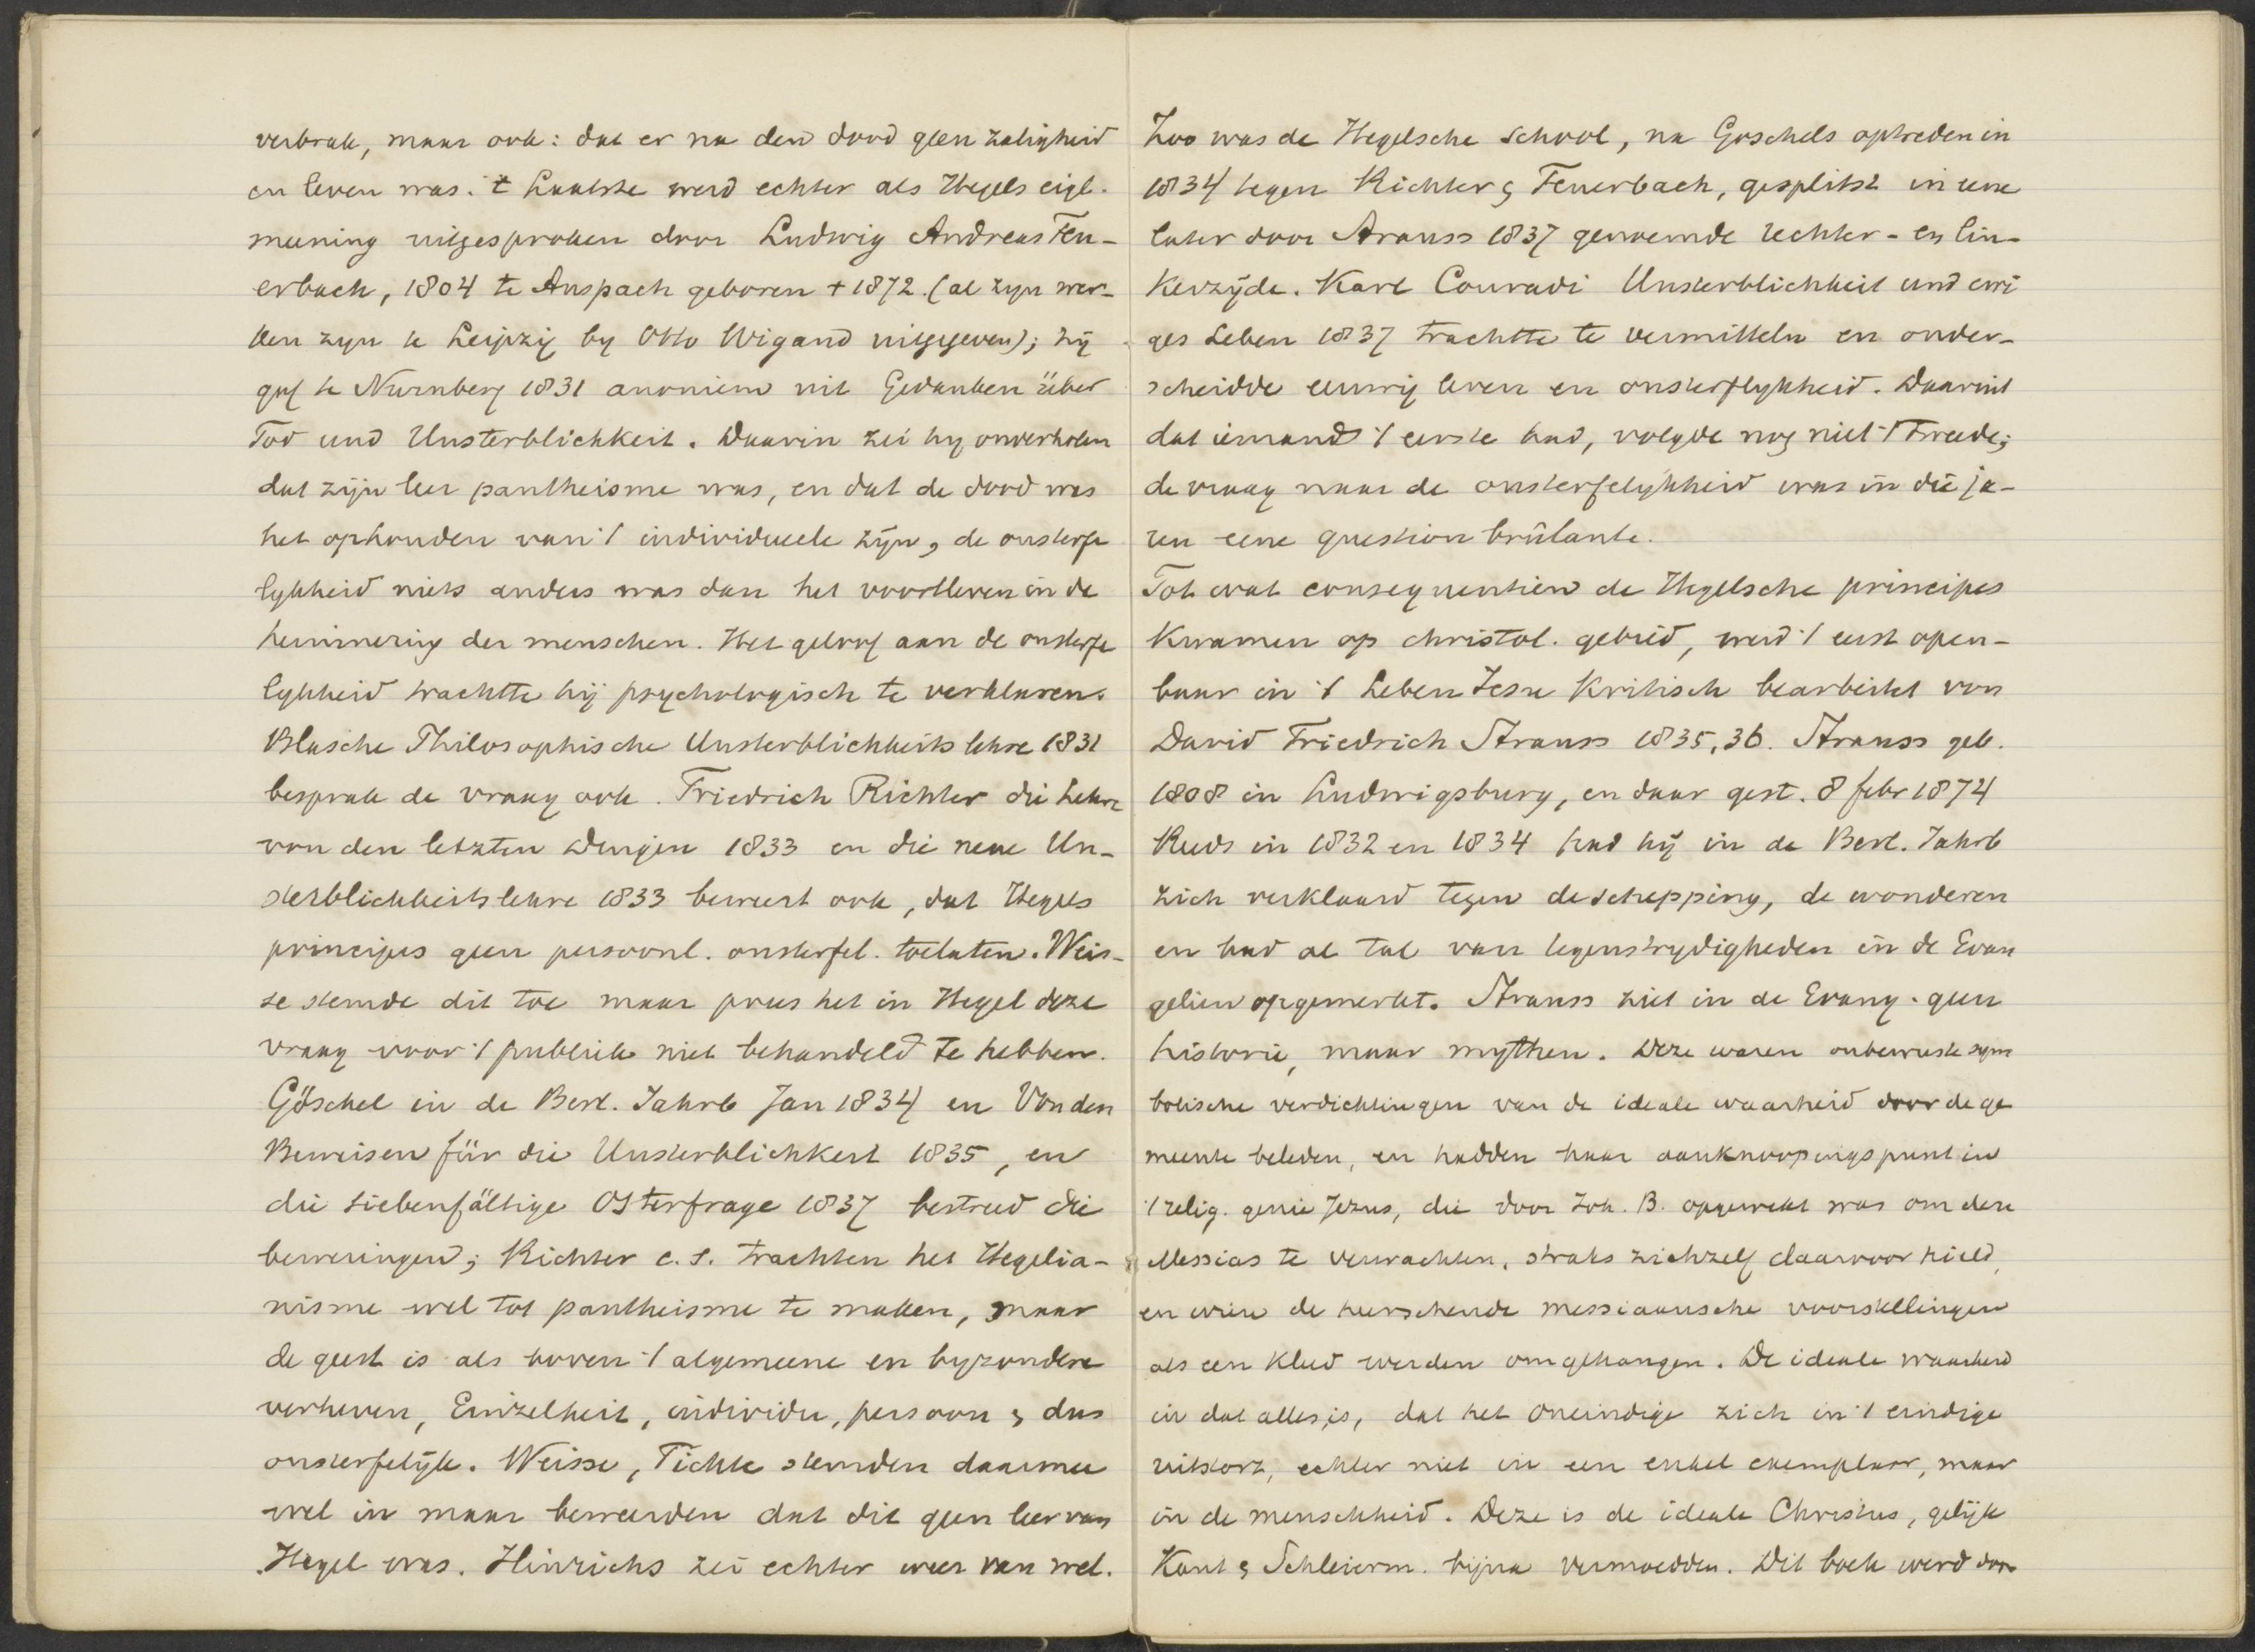 verbrak, maar ook: dat er na den dood geen zaligheid
en leven was. 't Laatste werd echter als Hegels eigl.
meening uitgesproken door Ludwig Andreas Feu-
erbach, 1804 te Anspach geboren + 1872. (al zyn wer-
ken zyn te Leipzig by Otto Wigand uitgegeven); hij
gaf te Nurnberg 1831 anoniem uit Gedanken über
Tod und Unsterblichkeit. Daarin zei hy onverholen
dat zijn leer pantheisme was, en dat de dood was
het ophouden van 't individueele zijn, de onsterfe
lykheid niets anders was dan het voortleven in de
herinnering der menschen. Het geloof aan de onsterfe
lykheid trachtte hij psychologisch te verklaren.
Blasche Philosophische Unsterblichkeitslehre 1831
besprak de vraag ook. Friedrich Richter die Lehre
von den letzten Dingen 1833 en die neue Un-
sterblichkeitslehre 1833 beweert ook, dat Hegels
principes geen persoonl. onsterfel. toelaten. Weis-
se stemde dit toe maar prees het in Hegel deze
vraag voor 't publiek niet behandeld te hebben.
Göschel in de Berl. Jahrb Jan 1834 en Von den
Beweisen für die Unsterblichkeit 1835, en
die siebenfältige Osterfrage 1837 bestreed die
beweringen; Richter c.s. trachten het Hegelia-
nisme wel tot pantheisme te maken, maar
de geest is als boven 't algemeene en byzondere
verheven, Einzelheit, individu, persoon & dus
onsterfelijk. Weisse, Fichte stemden daarmee
wel in maar beweerden dat dit geen leer van
Hegel was. Hinrichs zei echter weer van wel.
Zoo was de Hegelsche School, na Goschels optreden in
1834 tegen Richter & Feuerbach, gesplitst in eene
later door Strauss 1837 genoemde rechter- en lin-
kerzijde. Karl Conradi Unsterblichkeit und ewi
ges Leben 1837 trachtte te vermitteln en onder-
scheidde eeuwig leven en onsterflykheid. Daaruit
dat iemand 't eerste had, volgde nog niet 't tweede;
de vraag naar de onsterfelijkheid was in die ja-
ren eene question brûlante.
Tot wat consequentien de Hegelsche principes
kwamen op christol. gebied, werd 't eerst open-
baar in 't Leben Jesu kritisch bearbeitet von
David Friedrich Strauss 1835, 36. Strauss geb.
1808 in Ludwigsburg, en daar gest. 8 febr 1874
Reeds in 1832 en 1834 had hij in de Berl. Jahrb
zich verklaard tegen de schepping, de wonderen
en had al tal van tegenstrydigheden in de Evan
gelien opgemerkt. Strauss ziet in de Evang. geen
historie, maar mythen. Deze waren onbewuste sym
bolische verdichtingen van de ideale waarheid door de ge
meente beleden, en hadden haar aanknoopingspunt in
't relig. genie Jezus, die door Joh. B. opgewekt was om den
Messias te verwachten, straks zichzelf daarvoor hield,
en wien de heerschende messiaansche voorstellingen
als een kleed werden omgehangen. De ideale waarheid
in dat alles is, dat het oneindige zich in 't eindige
uitstort, echter niet in een enkel exemplaar, maar
in de menschheid. Deze is de ideale Christus, gelijk
Kant & Schleierm. bijna vermoedden. Dit boek werd door